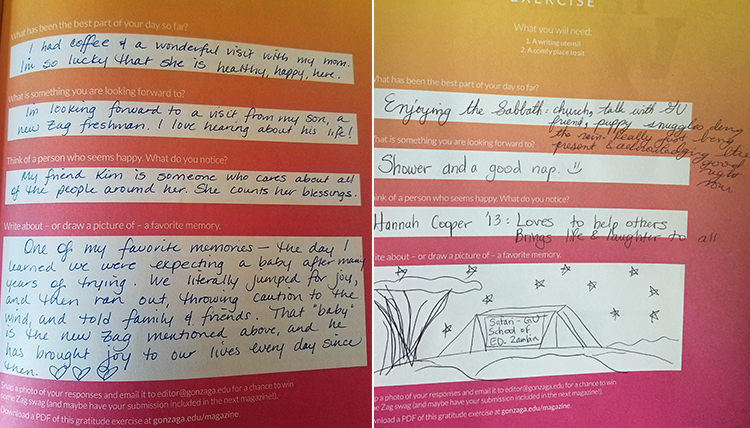 What has been the best part of your day so far?
I had coffee & a wonderful visit with my mom.
I'm so lucky that she is healthy, happy, here.
What is something you are looking forward to?
I'm looking forward to a visit from my son, a
new Zag freshman. I love hearing about his life!
Think of a person who seems happy. What do you notice?
My friend Kim is someone who cares about all
of the people around her. She counts her blessings.
Write about – or draw a picture of – a favorite memory.
One of my favorite memories — the day I
learned we were expecting a baby after many
years of trying. We literally jumped for joy,
and then ran out, throwing caution to the
wind, and told family & friends. That "baby"
is the new Zag mentioned above, and he
has brought joy to our lives every day since
then.
Snap a photo of your responses and email it to editor@gonzaga.edu for a chance to win
some Zag swag (and maybe have your submission included in the next magazine).
Download a PDF of this gratitude exercise at gonzaga.edu/magazine.
EXERCISE
What you will need:
1. A writing utensil
2. A comfy place to sit
What has been the best part of your day so far?
Enjoying the Sabbath: church, talk with GU
friend, puppy snuggles during
the rain. Really just being
present & acknowledging the
good
right
now.
What is something you are looking forward to?
Shower and a good nap.
Think of a person who seems happy. What do you notice?
Hannah Cooper '13: Loves to help others
Brings life & laughter to all
Write about – or draw a picture of – a favorite memory.
Safari - GU
School of
ED. Zambia
Snap a photo of your responses and email it to editor@gonzaga.edu for a chance to win
some Zag swag (and maybe have your submission included in the next magazine).
Download a PDF of this gratitude exercise at gonzaga.edu/magazine.